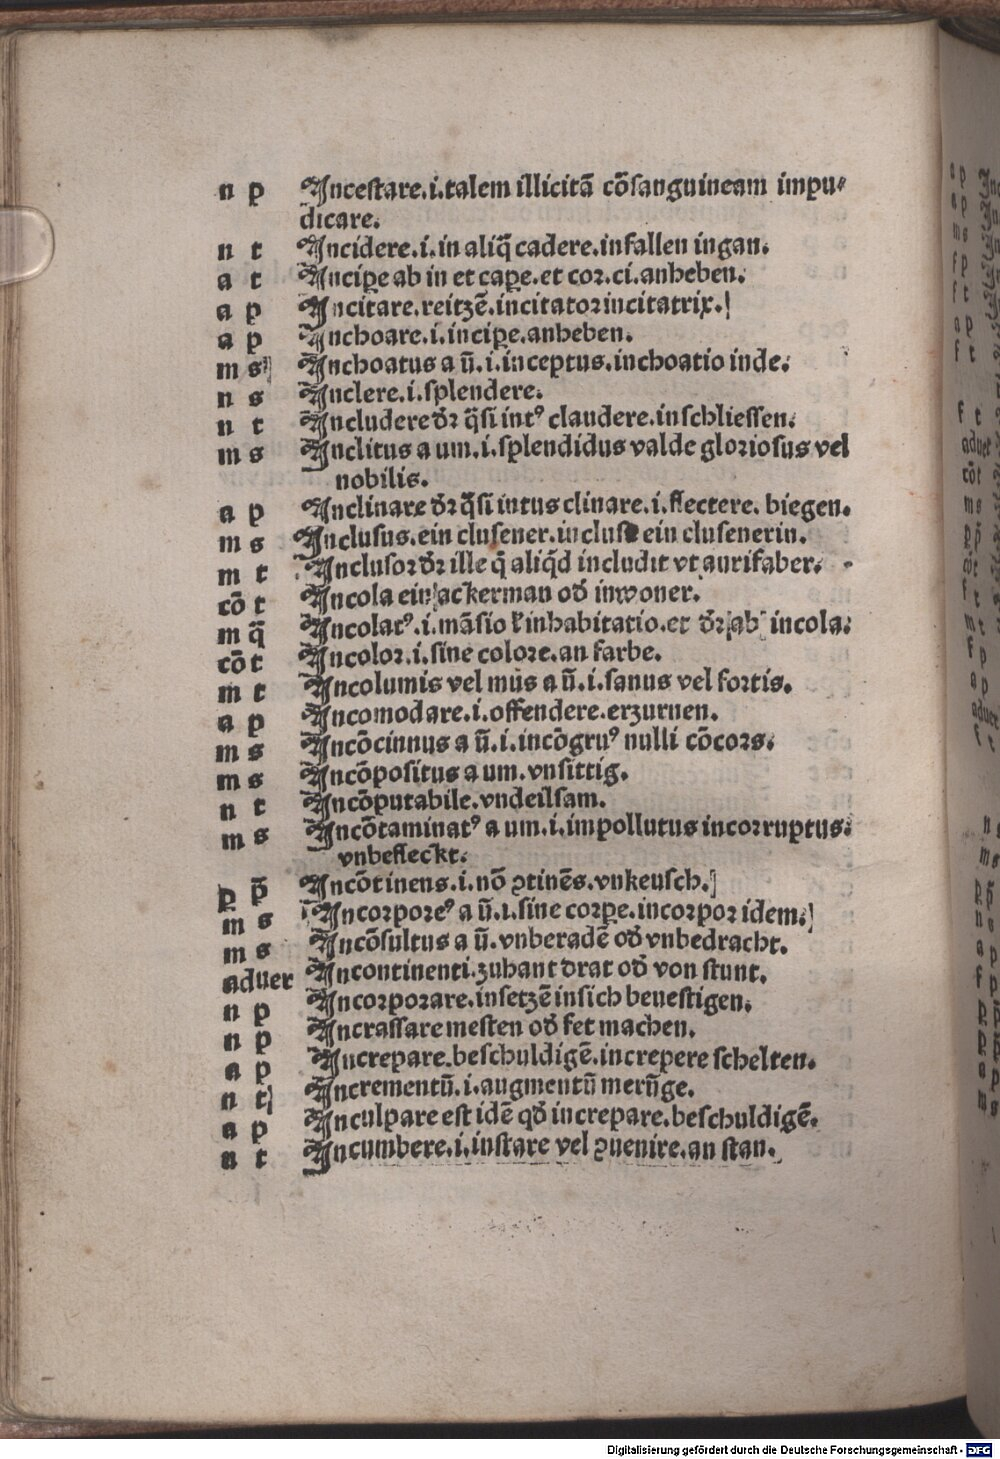 n p Incestare.i.talem illicitā cōsanguineam impu⸗
dicare.
n t Incidere.i.in aliq̄ cadere.infallen ingan.
a t Incipe ab in et cape.et cor.ci.anheben.
a p Incitare.reitzē.incitator incitatrix.
a p Inchoare.i.incipe.anheben.
m s Inchoatus a ū.i.inceptus.inchoatio inde.
n s Inclere.i.splendere.
n t Includere dr̄ q̄si intꝰ claudere.inschliessen.
m s Inclitus a um.i.splendidus valde gloriosus vel
nobilis.
a p Inclinare dr̄ q̄si intus clinare.i.flectere. biegen.
m s Inclusus.ein clusener.inclusa ein clusenerin.
m t Inclusor dr̄ ille q̄ aliq̄d includit vt aurifaber.
cō t Incola ein ackerman od̄ inwoner.
m q̄ Incolatꝰ.i.māsio ł inhabitatio.et dr̄ ab incola.
cō t Incolor.i.sine colore.an farbe.
m t Incolumis vel mus a ū.i.sanus vel fortis.
a p Incomodare.i.offendere.erzurnen.
m s Incōcinnus a ū.i.incōgruꝰ nulli cōcors.
m s Incōpositus a um.vnsittig.
n t Incōputabile.vndeilsam.
m s Incōtaminatꝰ a um.i.impollutus incorruptus.
vnbefleckt.
p p̄ Incōtinens.i.nō ꝯtinēs.vnkeusch.
m s Incorporeꝰ a ū.i.sine corpe.incorpor idem.
m s Incōsultus a ū.vnberadē od̄ vnbedracht.
aduer Incontinenti.zuhant drat od̄ von stunt.
n p Incorporare.insetzē insich beuestigen.
n p Incrassare mesten od̄ fet machen.
a p Increpare.beschuldigē.increpere schelten.
n t Incrementū.i.augmentū merūge.
a p Inculpare est idē qd̄ increpare.beschuldigē.
n t Incumbere.i.instare vel ꝯuenire.an stan.
Digitalisierung gefördert durch die Deutsche Forschungsgemeinschaft - DFG